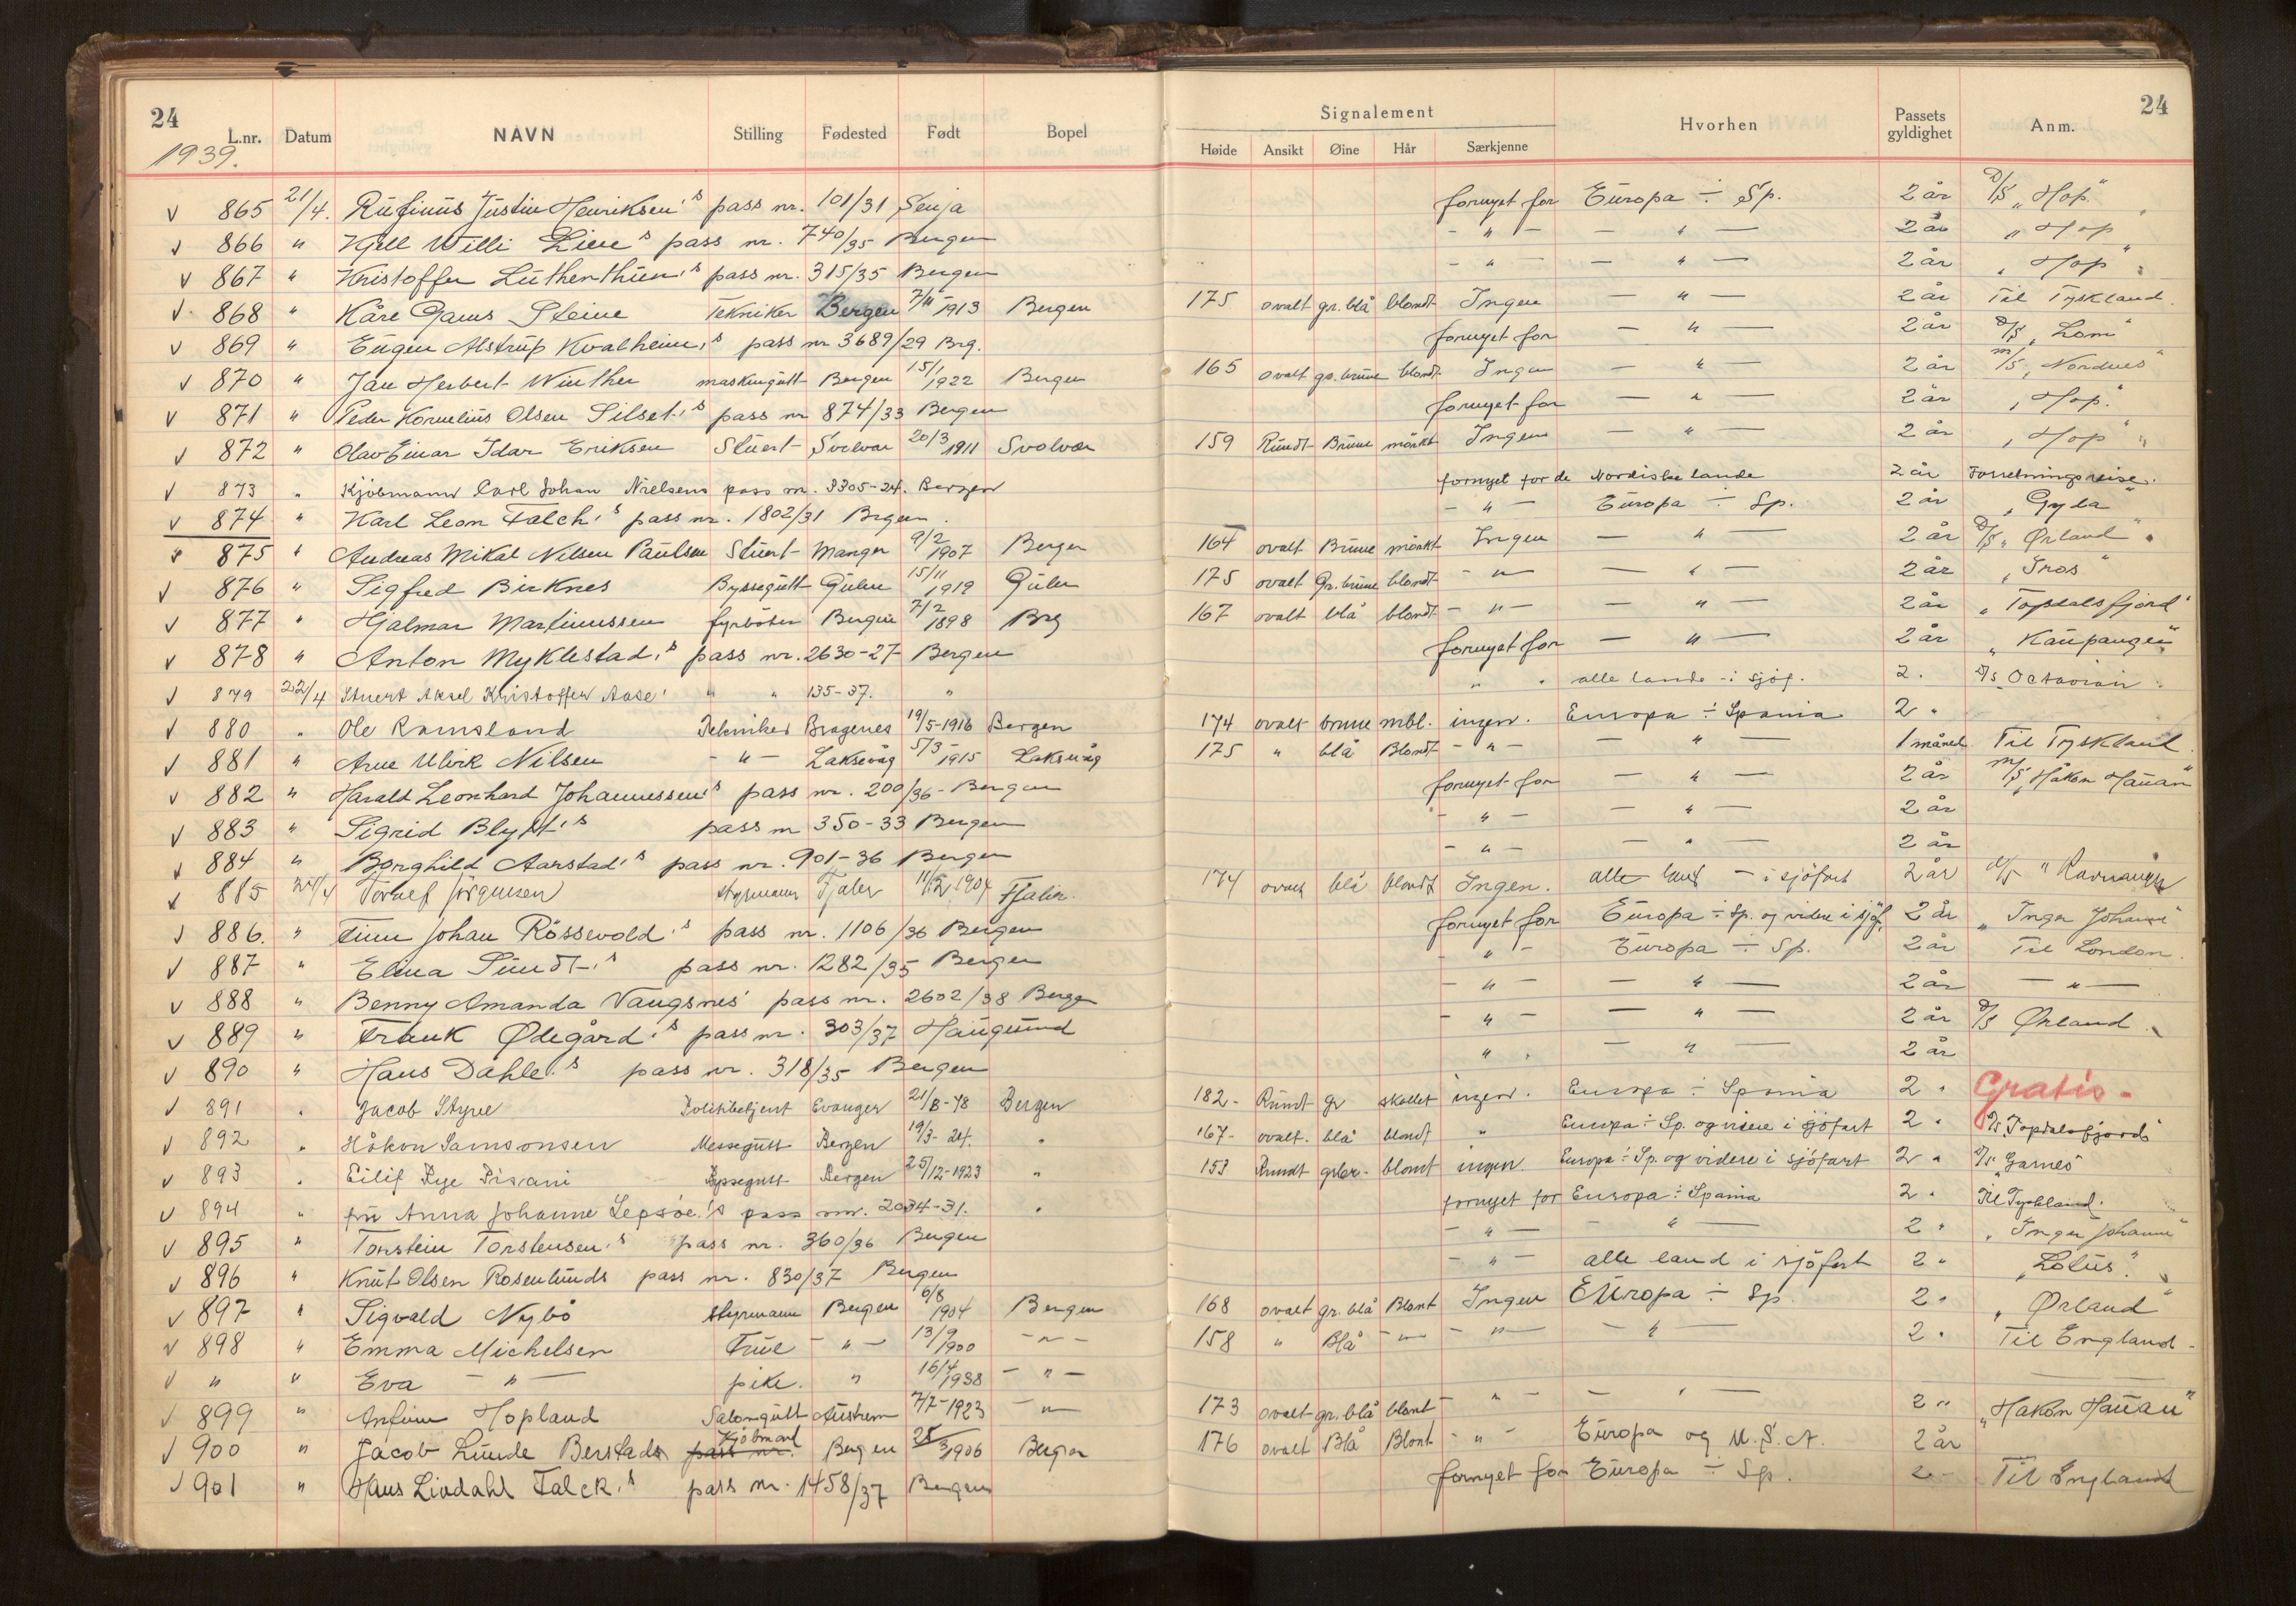 24
24
1939.
L.nr. Datum NAVN Stilling Fødested Født Bopel Signalement Høide Ansikt Øine Hår Særkjenne Hvorhen Passets gyldighet Anm.
v 865 21/4. Rufinus Justin Henriksen's pass nr. 101/31 Senja fornyet for Europa ÷ Sp. 2 år D/S „Hop"
v 866 " Kjell Willi Lie's pass nr. 740/35 Bergen - " - - " - 2 år „Hop"
v 867 " Kristoffer Luthenthun's pass nr. 315/35 Bergen - " - - " - 2 år „Hop"
v 868 " Kåre Gams Steine Tekniker Bergen 7/11 1913 Bergen 175 ovalt gr.blå blondt Ingen - " - 2 år Til Tyskland.
v 869 " Eugen Alstrup Kvalheim's pass nr 3689/29 Brg. fornyet for - " - 2 år D/S „Lom"
v 870 " Jan Herbert Winther maskingutt Bergen 15/1 1922 Bergen 165 ovalt gr.brune blondt Ingen - " - 2 år m/S „Nordnes"
v 871 " Peder Kornelius Olsen Silset's pass nr 874/33 Bergen fornyet for - " - 2 år „Hop"
v 872 " Olav Einar Idar Eriksen Stuert Svolvær 20/3 1911 Svolvær 159 Rundt Brune mörkt Ingen - " - 2 år „Hop"
v 873 " Kjöbmann Carl Johan Nielsens pass nr. 3305-24. Bergen fornyet for de Nordiske lande 2 år Forretningsreise.
v 874 " Karl Leon Falch's pass nr. 1802/31 Bergen. - " - Europa ÷ Sp. 2 år „Gyda"
v 875 " Andreas Mikal Nilsen Paulsen Stuert Manger 9/2 1907 Bergen 164 ovalt Brune mörkt Ingen - " - 2 år D/S „Ørland"
v 876 " Sigfred Birknes Byssegutt Gulen 15/11 1919 Gulen 175 ovalt Gr.brune blondt - " - - " - 2 år „Snos"
v 877 " Hjalmar Martinussen fyrböter Bergen 7/2 1898 Brg 167 ovalt blå blondt - " - - " - 2 år „Topdalsfjord"
v 878 " Anton Myklestad's pass nr. 2630-27 Bergen fornyet for - " - 2 år „Kaupanger"
v 879 22/4 Stuert Aksel Kristoffer Aase' " " 135-37. " " " alle lande i sjöf. 2. D/S „Octavian
v 880 " Ole Ramsland Tekniker Bragenes 19/5-1916 Bergen 174 ovalt brune mbl. ingen. Europa ÷ Spania 2 "
v 881 " Arne Ulrik Nilsen - " - Laksevåg 5/3 1915 Laksevåg 175 " blå Blondt - " - - " - 1 måned Til Tyskland.
v 882 " Harald Leonhard Johannessen's pass nr. 200/36 - Bergen fornyet for - " - 2 år m/S „Håkon Hauan"
v 883 " Sigrid Blytt's pass nr 350-33 Bergen - " - - " - 2 år
v 884 " Borghild Aarstad's pass nr. 901-36 Bergen - " - - " - 2 år
v 885 24/4 Torleif Jörgensen styrmann Fjaler 11/12 1907 Fjaler. 174 ovalt blå blondt Ingen. alle land - i sjöfart 2 år
v 886. " Finn Johan Rössevold's pass nr. 1106/36 Bergen fornyet for Europa ÷ Sp. og videre i sjöf. 2 år „Inger Johanne"
v 887 " Elina Sundt's pass nr. 1282/35 Bergen - " - Europa ÷ Sp. 2 år Til London.
v 888 " Benny Amanda Vangsnes' pass nr. 2602/38 Bergen - " - - " - 2 år - " -
v 889 " Frank Ødegård's pass nr. 303/37 Haugesund - " - - " - 2 år D/S Ørland.
v 890 " Hans Dahle's pass nr. 318/35 Bergen " " - " - 2 år
v 891 " Jacob Styve Politibetjent Evanger 21/8-78 Bergen 182 - Rundt gr skallet ingen. Europa ÷ Spania 2 " Gratis -
v 892 " Håkon Samsonsen Messegutt Bergen 19/3-24. " 167 - ovalt. blå blondt " Europa ÷ Sp. og videre i sjöfart 2 " D/S „Topdalsfjord"
v 893 " Eilif Rye Pisani Byssegutt Bergen 25/12-1923 " 153 Rundt grbr - blondt ingen Europa ÷ Sp. og videre i sjöfart 2 " D/S „Garnes"
v 894 " fru Anna Johanne Lepsöe's pass nr. 2034-31. " fornyet for Europa ÷ Spania 2 " Til Tyskland.
v 895 " Torstein Torstensen's pass nr. 360/36 Bergen - " - - " - 2 " „Inger Johanne"
v 896 " Knut Olsen Rosenlunds pass nr. 830/37 Bergen - " - alle land i sjöfart 2 " „Lotus"
v 897 " Sigvald Nybö styrmann Bergen 6/8 1904 Bergen 168 ovalt gr.blå Blont Ingen Europa ÷ Sp. 2 " „Ørland"
v 898 " Emma Michelsen Frue - " - 13/9 1900 - " - 158 " Blå - " - - " - - " - 2 " Til England -
v " " Eva - " - pike. " 16/4 1938 - " -
v 899 " Anfinn Hopland Salongutt Austrem 7/7-1923 - " - 173 ovalt gr.blå blont - " - - " - 2 " „Håkon Hauan"
v 900 " Jacob Lunde Berstads pass nr. Kjöbmand Bergen 25/3 1906 Bergen 176 ovalt Blå Blont - " - Europa og U.S.A. 2 år
v 901 " Hans Lindahl Falck's pass nr. 1458/37 Bergen fornyet for Europa ÷ Sp. 2 - Til England